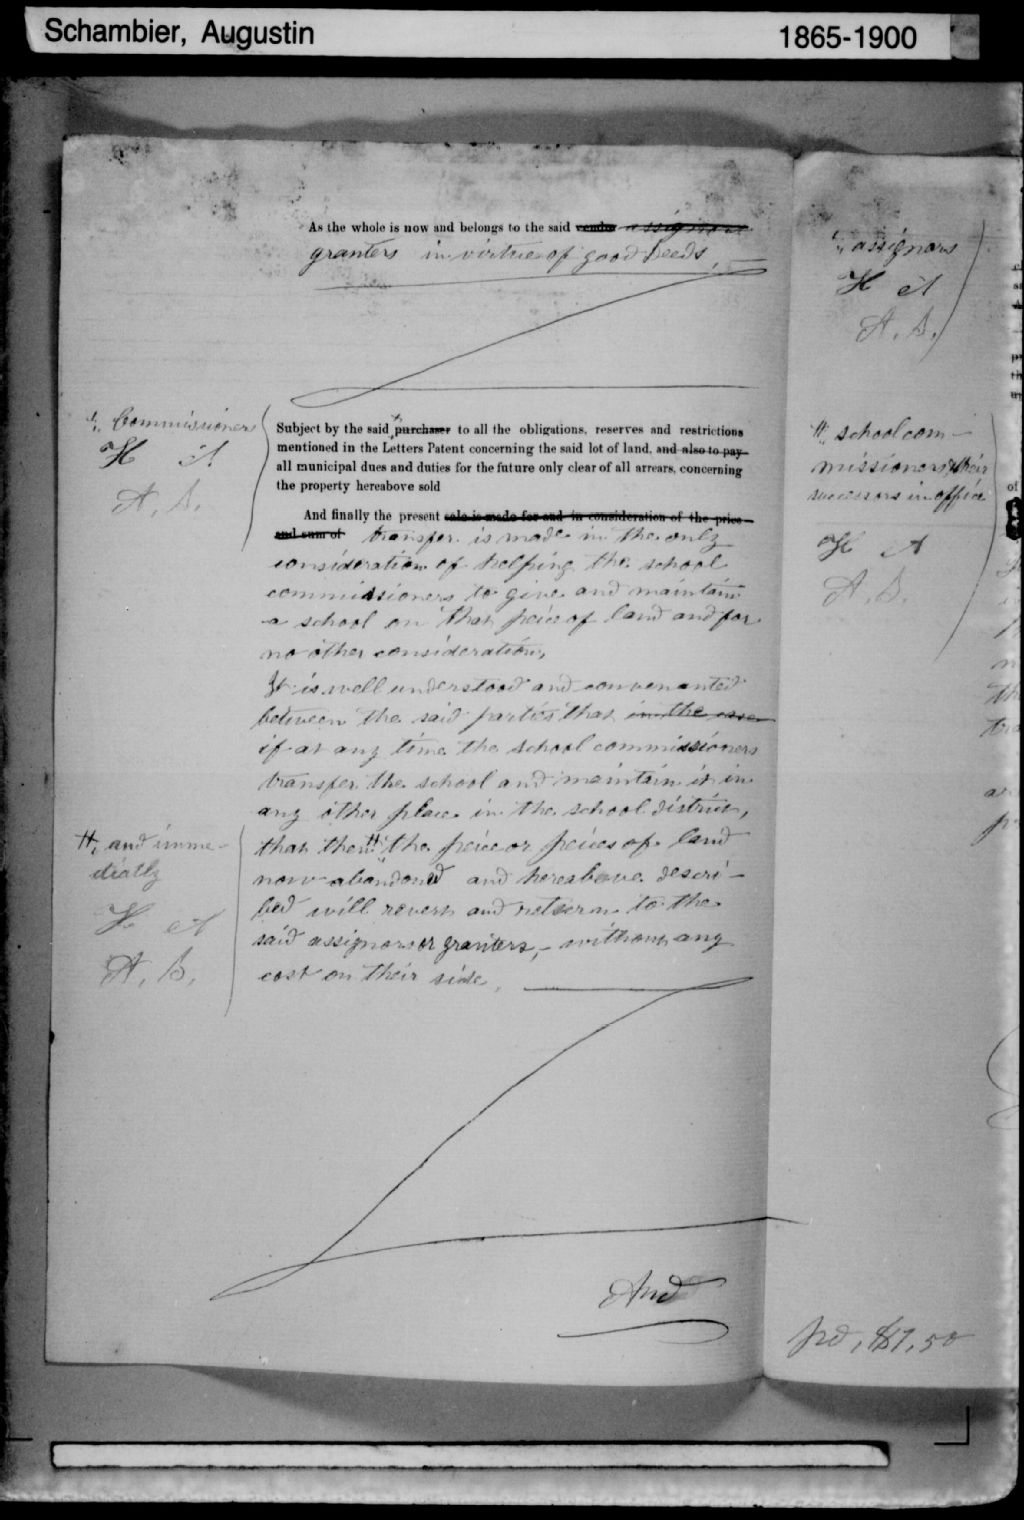 Schambier, Augustin
1865-1900
As the whole is now and belongs to the said vendor assignors
granters in virtue of good Deeds,
assignors
H A
A. S.
Commissioners
H A
A. S.
Subject by the said purchaser to all the obligations, reserves and restrictions
mentioned in the Letters Patent concerning the said lot of land, and also to pay
all municipal dues and duties for the future only clear of all arrears, concerning
the property hereabove sold
And finally the present sale is made for and in consideration of the price
and sum of transfer is made in the only
consideration of helping the school
commissioners to give and maintain
a school on that peice of land and for
no other consideration,
It is well understood and convenanted
between the said parties that in the case
if at any time the school commissioners
transfer the school and maintain it in
any other place in the school district,
that then # the peice or peices of land
now abandoned and hereabove descri-
bed will revert and return to the
said assignors or granters, - without any
cost on their side.
#, and imme-
diatly
H A
A. S.
# school com-
missioners & their
successors in office
H A
A. S.
And
pd, $1,50